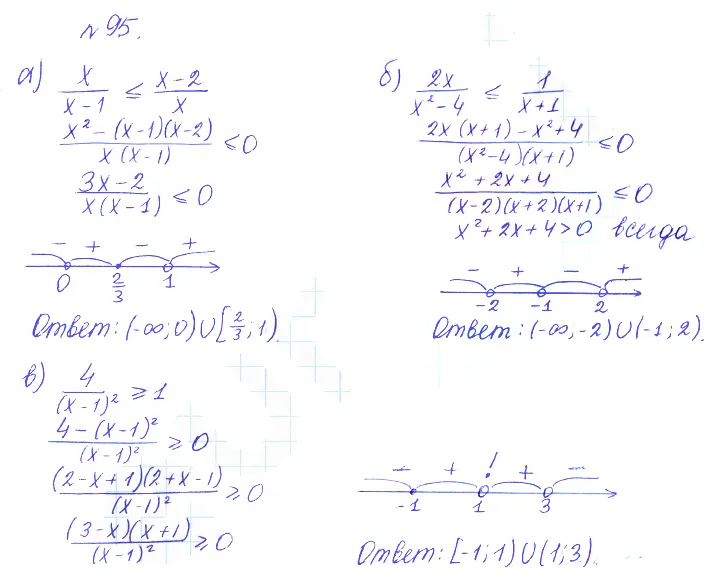 №95.
а) x/(x-1) ≤ (x-2)/x
(x²-(x-1)(x-2))/(x(x-1)) ≤ 0
(3x-2)/(x(x-1)) ≤ 0
- + - +
0 2/3 1
Ответ: (-∞; 0)∪[2/3; 1).
б) 2x/(x²-4) ≤ 1/(x+1)
(2x(x+1)-x²+4)/((x²-4)(x+1)) ≤ 0
(x²+2x+4)/((x-2)(x+2)(x+1)) ≤ 0
x²+2x+4>0 всегда
- + - +
-2 -1 2
Ответ: (-∞; -2)∪(-1; 2).
в) 4/(x-1)² ≥ 1
(4-(x-1)²)/(x-1)² ≥ 0
((2-x+1)(2+x-1))/(x-1)² ≥ 0
((3-x)(x+1))/(x-1)² ≥ 0
- + ! + -
-1 1 3
Ответ: [-1; 1)∪(1; 3).